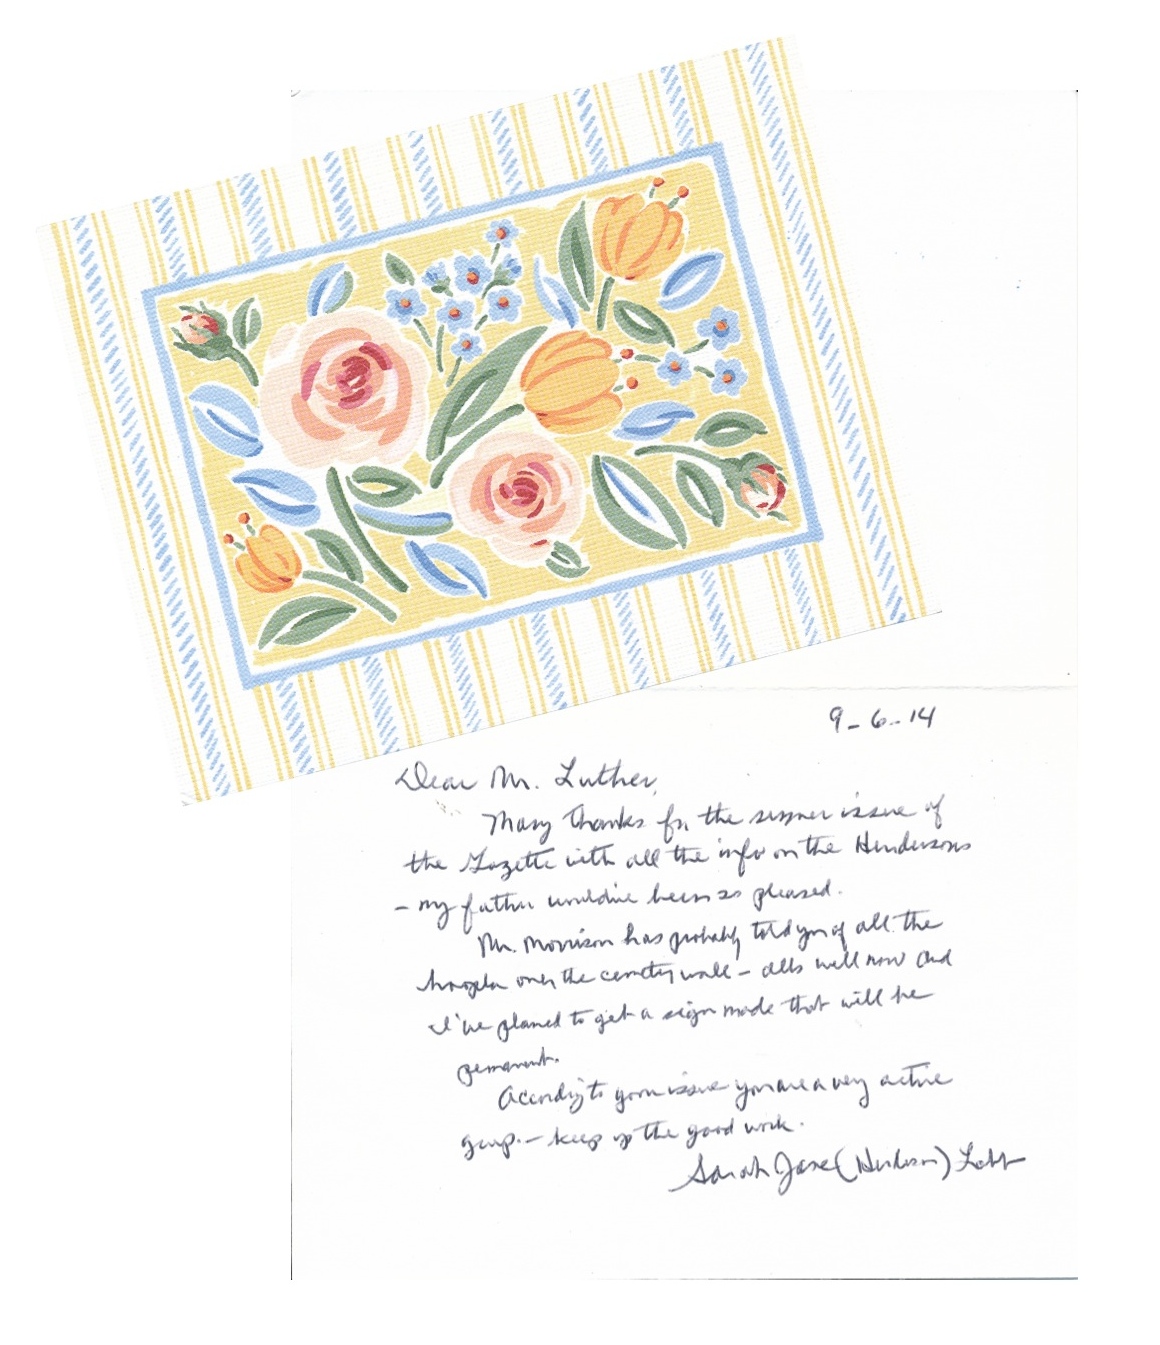 9-6-14
Dear Mr. Luther,
Many thanks for the summer issue of
the Gazette with all the info on the Hendersons
- my father would've been so pleased.
Mr. Morrison has probably told you of all the
over the cemetery wall - all's well now and
I've planned to get a sign made that will be
permanent.
According to your issue you are a very active
group. - keep up the good work.
Sarah Jane (Henderson)